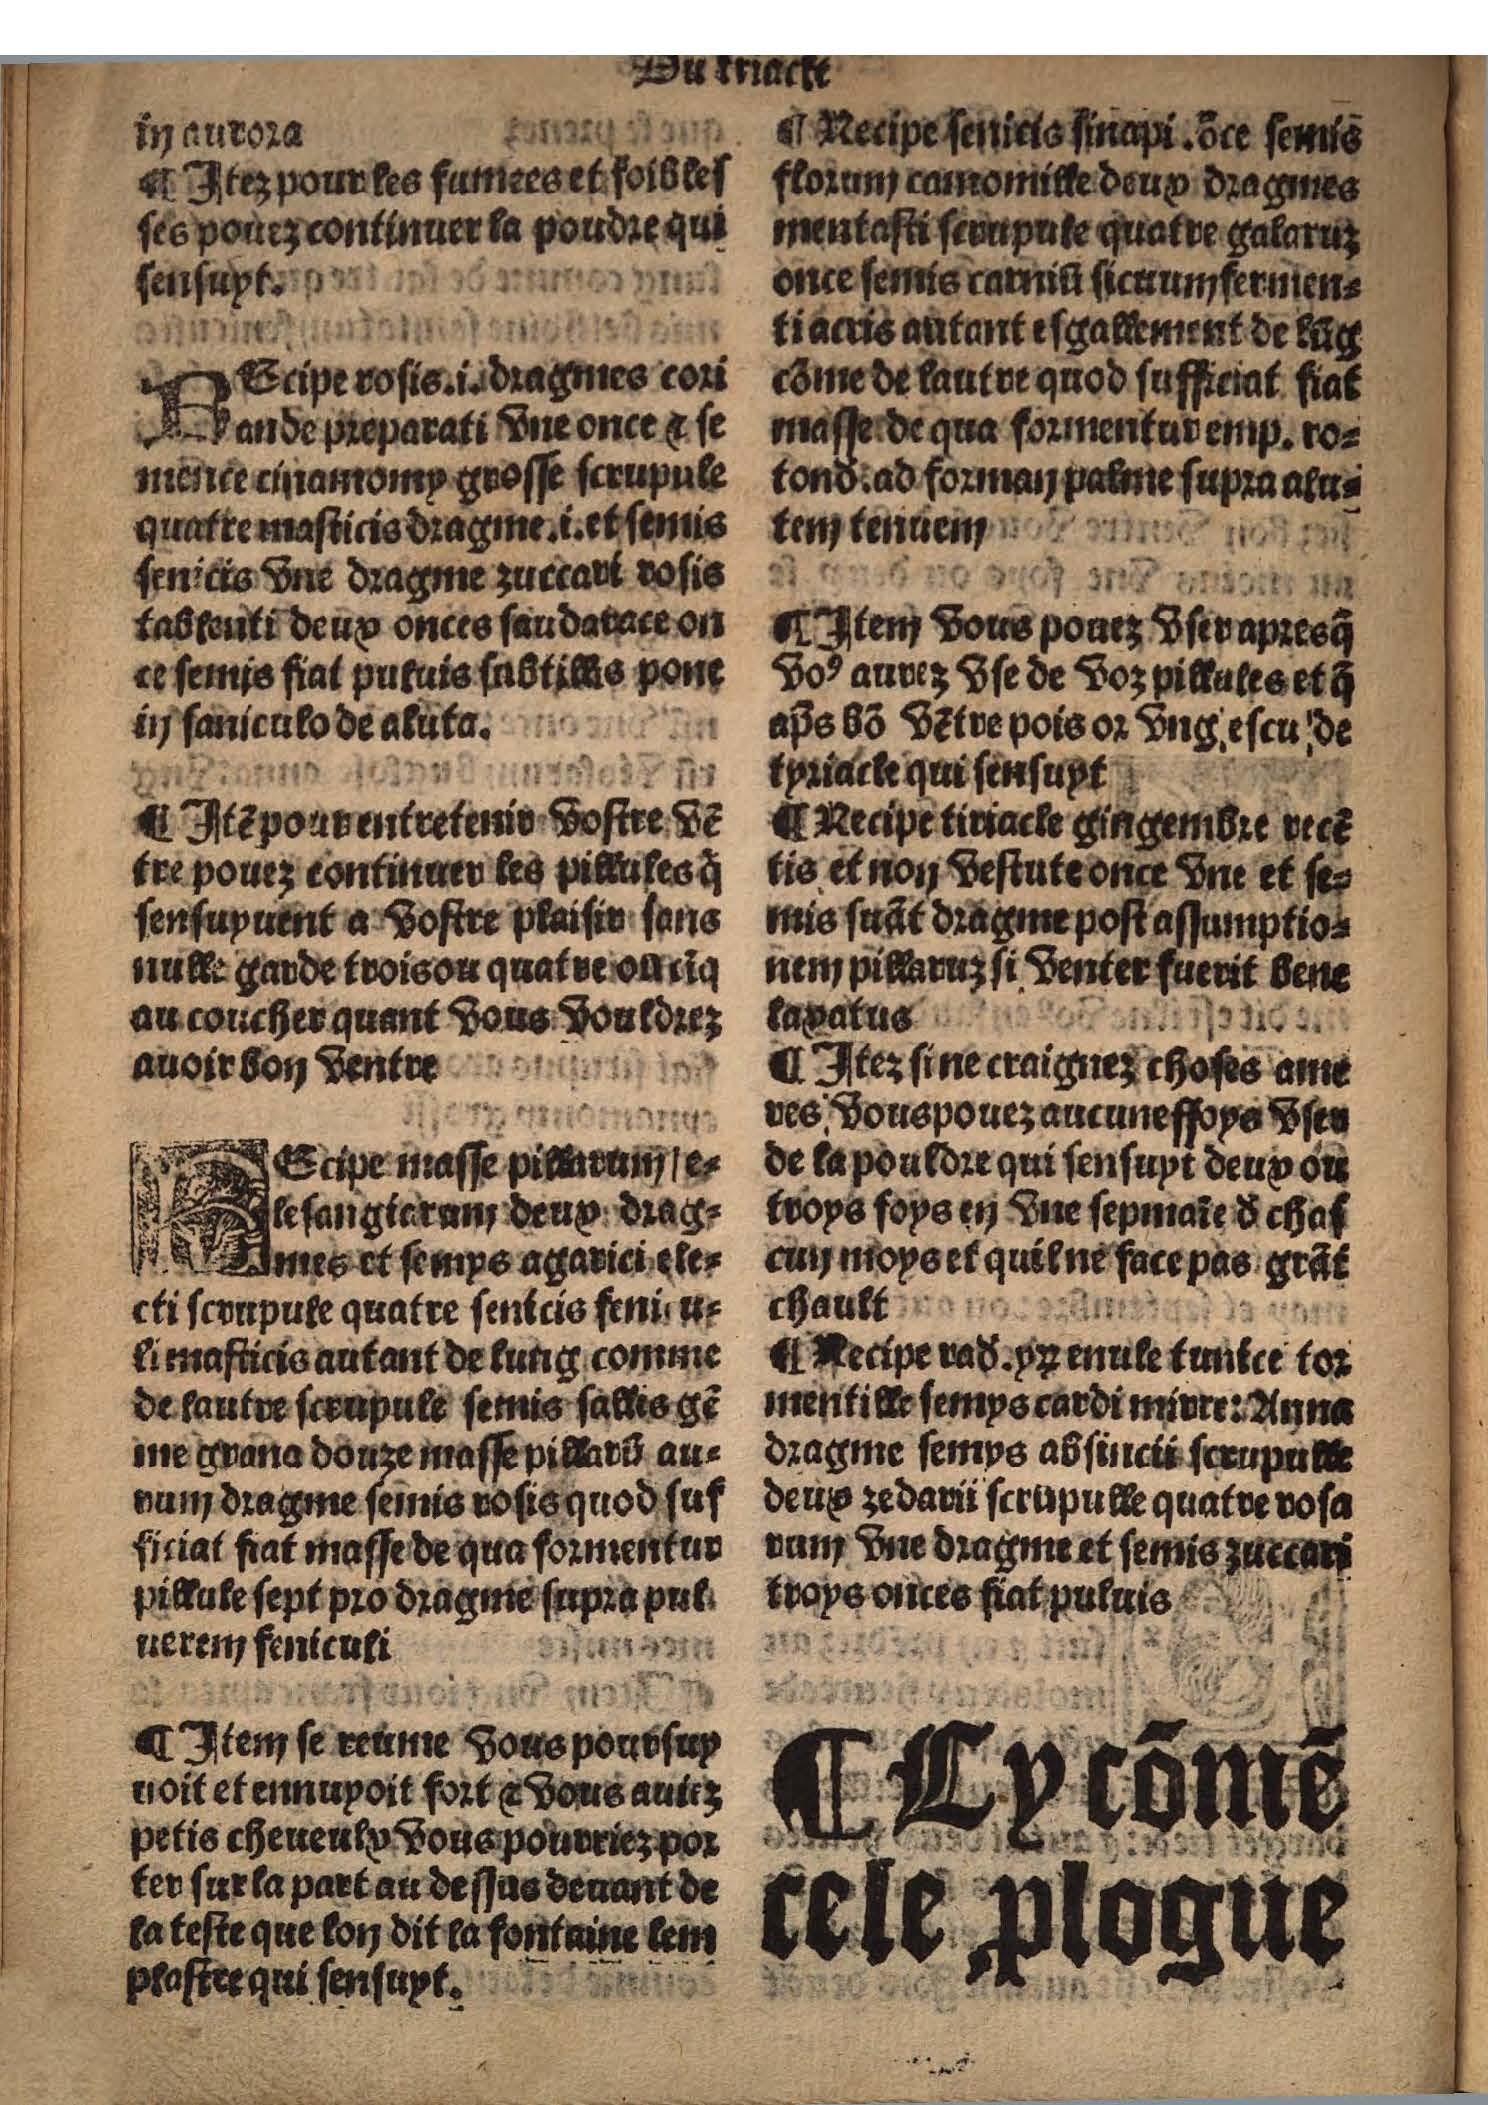 Du triacle
in aurora
¶ Itez pour les fumees et foiblesſ
ses pouez continuer la poudre qui
sensuyt.
REcipe rosis .i. dragmes cori
ande preparati vne once ⁊ se
mence cinamomy grosse scrupule
quatre masticis dragme .i. et semis
senicis vne dragme zuccari rosis
tablenti deux onces saudarace on
ce semis fiat puluis subtillis pone
in saniculo de aluta.
¶ Itē pour entretenir vostre vē
tre pouez continuer les pillules q̄
sensuyuent a vostre plaisir sans
nulle garde trois ou quatre ou cīq
au coucher quant vous vouldrez
auoir bon ventre
REcipe masse pillarum / e-
lesangiarum deux drag-
mes et semys agarici ele-
cti scrupule quatre senicis feni u-
li masticis autant de lung comme
de lautre scrupule semis sallis gē
me grana douze masse pillarū au-
rum dragme semis rosis quod suf
ficiat fiat masse de qua formentur
pillule sept pro dragme supra pul
uerem feniculi
¶ Item se reume vous poursuy
uoit et ennuyoit fort ⁊ vous auiez
petis cheueulx vous pourriez por
ter sur la part au dessus deuant de
la teste que lon dit la fontaine lem
plastre qui sensuyt.
¶ Recipe senicis sinapi .ōce semis
florum camomille deux dragmes
mentasti scrupule quatre galaruz
once semis carniū sicuum fermen-
ti acris autant esgallement de lūg
cōme de lautre quod sufficiat fiat
masse de qua formentur emp. ro-
tond. ad forman palme supra alu-
tem tenuem
¶ Item vous pouez vser apres q̄
voꝰ aurez vse de voz pillules et q̄
ap̄s bō vētre pois or vng escu de
tyriacle qui sensuyt
¶ Recipe tiriacle gingembre recē
tis et non vestute once vne et se-
mis suāt dragme post assumptio-
nem pillaruz si venter fuerit bene
laxatus
¶ Itez si ne craignez choses ame
res vous pouez aucuneffoys vser
de la pouldre qui sensuyt deux ou
troys foys en vne sepmaīe d̄ chaſ
cun moys et quil ne face pas grāt
chault
¶ Recipe rad. yꝝ enule tunice tor
mentille semys cardi mirre: Anna
dragme semys absincii scrupulle
deux zedarii scrupulle quatre rosa
rum vne dragme et semis zuccari
troys onces fiat puluis
¶ Cy cōmē
ce le ꝓlogue